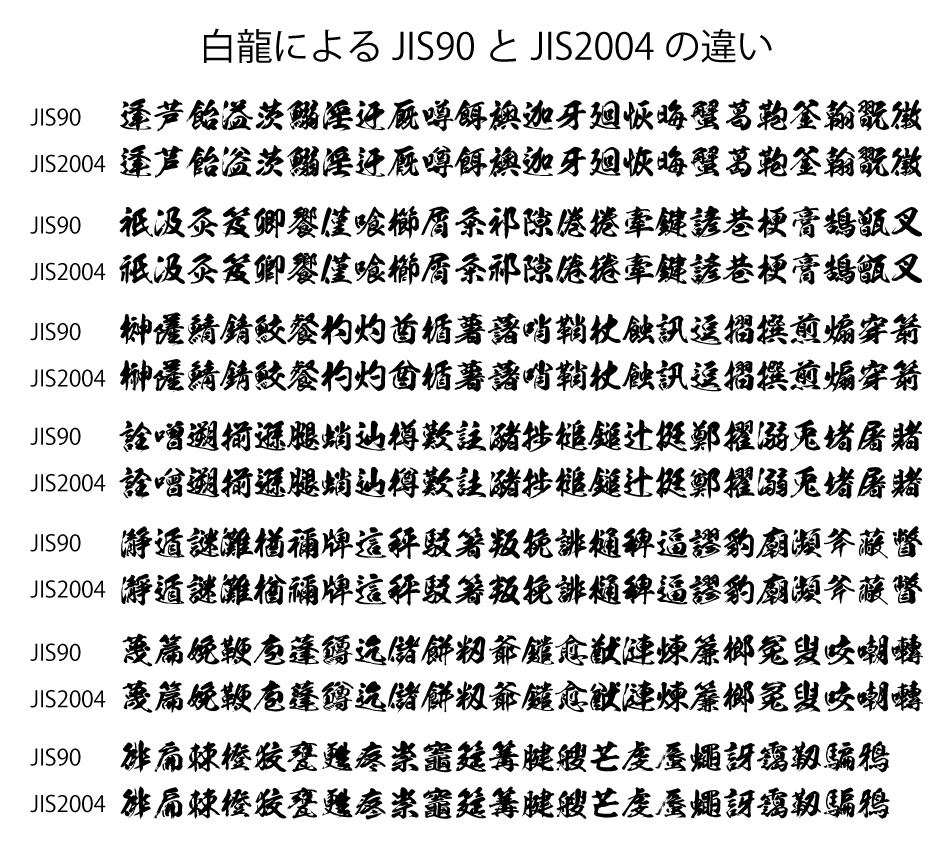 白龍による JIS90 と JIS2004 の違い
JIS90 逢芦飴溢茨鰯淫迂厩噂餌襖迦牙廻恢晦蟹葛鞄釜翰翫徽
JIS2004 逢芦飴溢茨鰯淫迂厩噂餌襖迦牙廻恢晦蟹葛鞄釜翰翫徽
JIS90 祇汲灸笈卿饗僅喰櫛屑粂祁隙倦捲牽鍵諺巷梗膏鵠甑叉
JIS2004 祇汲灸笈卿饗僅喰櫛屑粂祁隙倦捲牽鍵諺巷梗膏鵠甑叉
JIS90 榊薩鯖錆鮫餐杓灼酋楯薯藷哨鞘杖蝕訊逗摺撰煎煽穿箭
JIS2004 榊薩鯖錆鮫餐杓灼酋楯薯藷哨鞘杖蝕訊逗摺撰煎煽穿箭
JIS90 詮噌遡揃遜腿蛸辿樽歎註瀦捗槌鎚辻挺鄭擢溺兎堵屠賭
JIS2004 詮噌遡揃遜腿蛸辿樽歎註瀦捗槌鎚辻挺鄭擢溺兎堵屠賭
JIS90 瀞遁謎灘楢禰牌這秤駁箸叛挽誹樋稗逼謬豹廟瀕斧蔽瞥
JIS2004 瀞遁謎灘楢禰牌這秤駁箸叛挽誹樋稗逼謬豹廟瀕斧蔽瞥
JIS90 蔑篇娩鞭庖蓬鱒迄儲餅籾爺鑓愈猷漣煉簾榔冤叟咬嘲囀
JIS2004 蔑篇娩鞭庖蓬鱒迄儲餅籾爺鑓愈猷漣煉簾榔冤叟咬嘲囀
JIS90 徘扁棘橙狡甕甦疼祟竈筵篝腱艘芒虔蜃蠅訝靄靱騙鴉
JIS2004 徘扁棘橙狡甕甦疼祟竈筵篝腱艘芒虔蜃蠅訝靄靱騙鴉